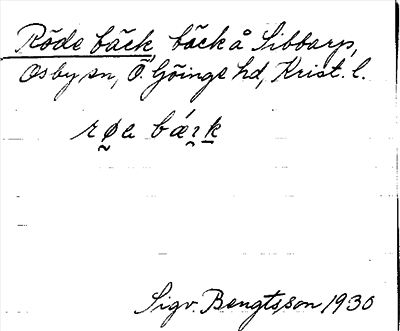 Röde bäck, bäck å Sibbarp,
Osby sn, Ö. Göinge hd, Krist. l.
Sigv. Bengtsson 1930